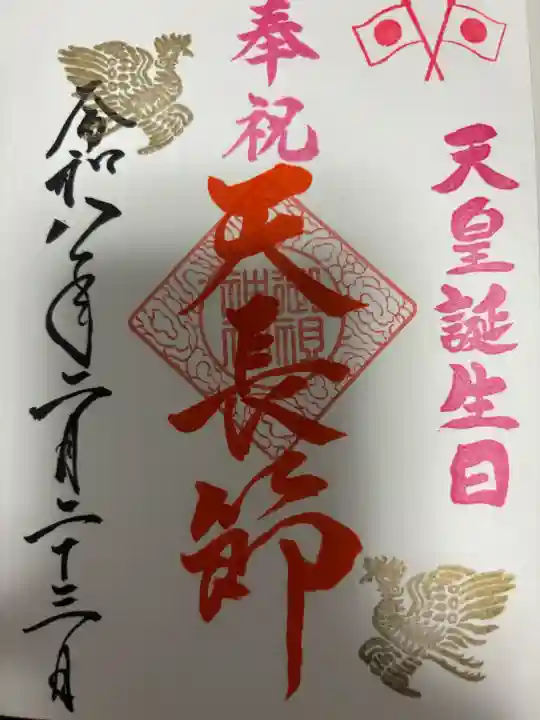 天皇誕生日
奉祝
天長節
令和八年二月二十三日